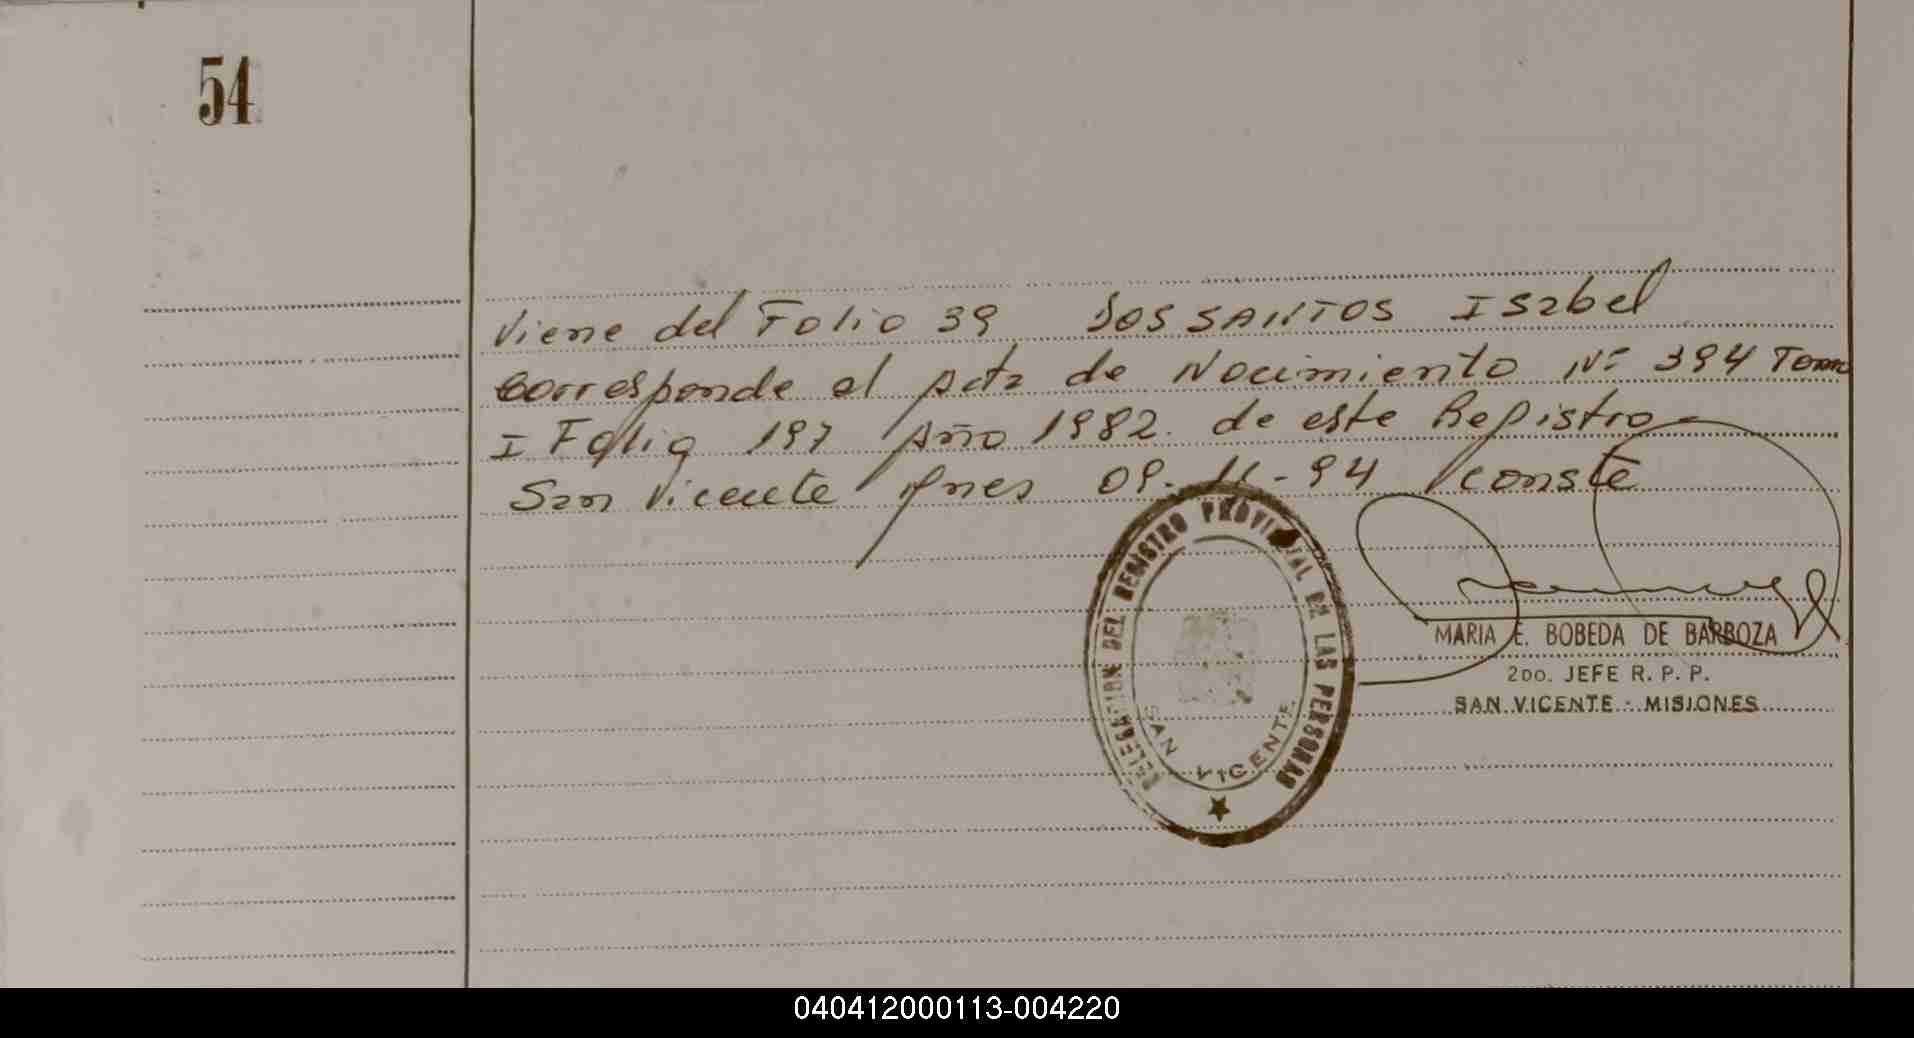 54
Viene del Folio 39 DOS SANTOS Isabel
Corresponde al Acta de Nacimiento Nº 394 Tomo
I Folio 197 Año 1982. de este Registro
San Vicente Mnes 09-11-94 Conste
DELEGACION DEL REGISTRO PROVINCIAL DE LAS PERSONAS
SAN VICENTE
MARIA E. BOBEDA DE BARBOZA
2DO. JEFE R. P. P.
SAN VICENTE - MISIONES
040412000113-004220